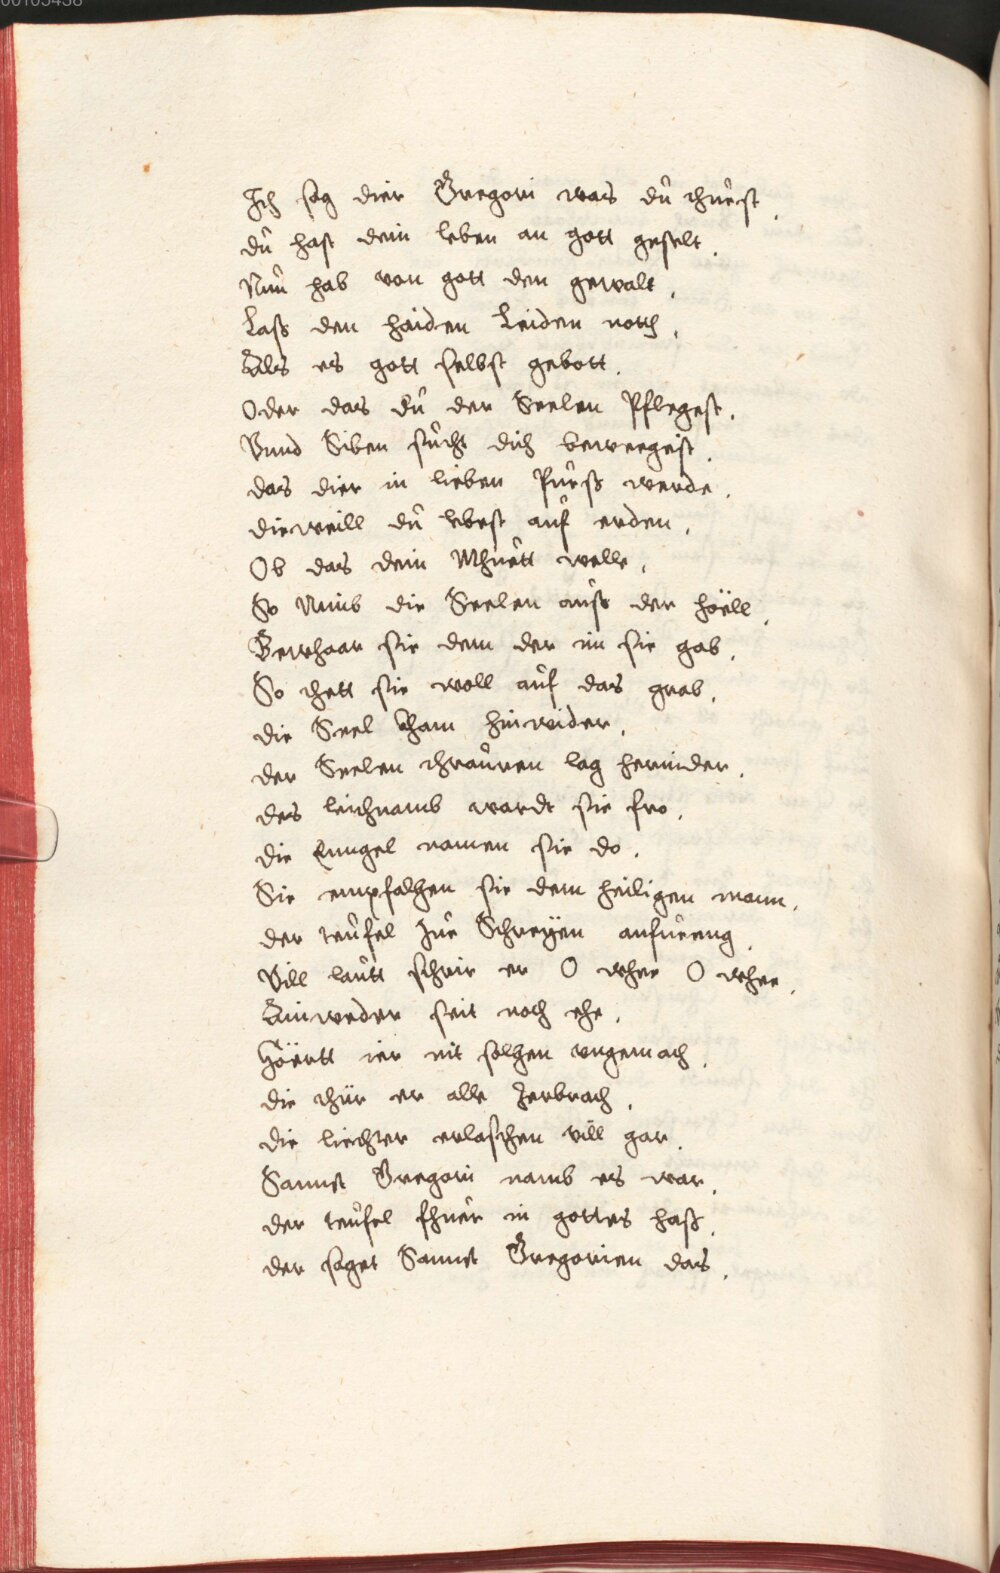 00105438
Ich sag dier Gregori was dú thúest.
dú hast dein leben an gott geselt.
Nún hab von gott den gewalt.
Lass den haiden Leiden noth.
Als es gott selbst gebott.
Oder das dú der Seelen Pflegest.
Vnnd Siben súcht dich bewegeist.
das dier in lieben Púesß werde.
dieweill dú lebest aúf erden.
Ob das dein Mhúett welle.
So Nimb die Seelen aúss der höell.
Bewhaar sie dem der im sie gab.
So thett sie woll aúf das grab.
die Seel kham hinwider.
der Seelen thraúren lag hernider.
des leichnamb wardt sie fro.
die Enngel namen sie do.
Sie empfalhen sie dem heiligen mann.
der teúfel Zúe Schreÿen anfúeng.
Vill laútt schrie er O whee O whee.
Ainweder seit noch ehe.
Höertt ier nit solhen vngemach.
die thür er alle Zerbrach.
die liechter erlaschen vill gar.
Sannct Gregori namb es war.
der teúfel fhúer in gottes haß.
der saget Sannct Gregorien das.